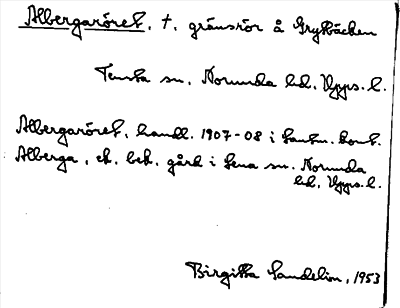 Albergaröret, †, gränsrör å Grytbäcken
Tensta sn, Norunda hd, Upps. l.
Albergaröret, handl. 1907-08 i Lantm. kont.
Alberga, ek. bek. gård i Lena sn, Norunda
hd, Upps. l.
Birgitta Sandelin, 1953